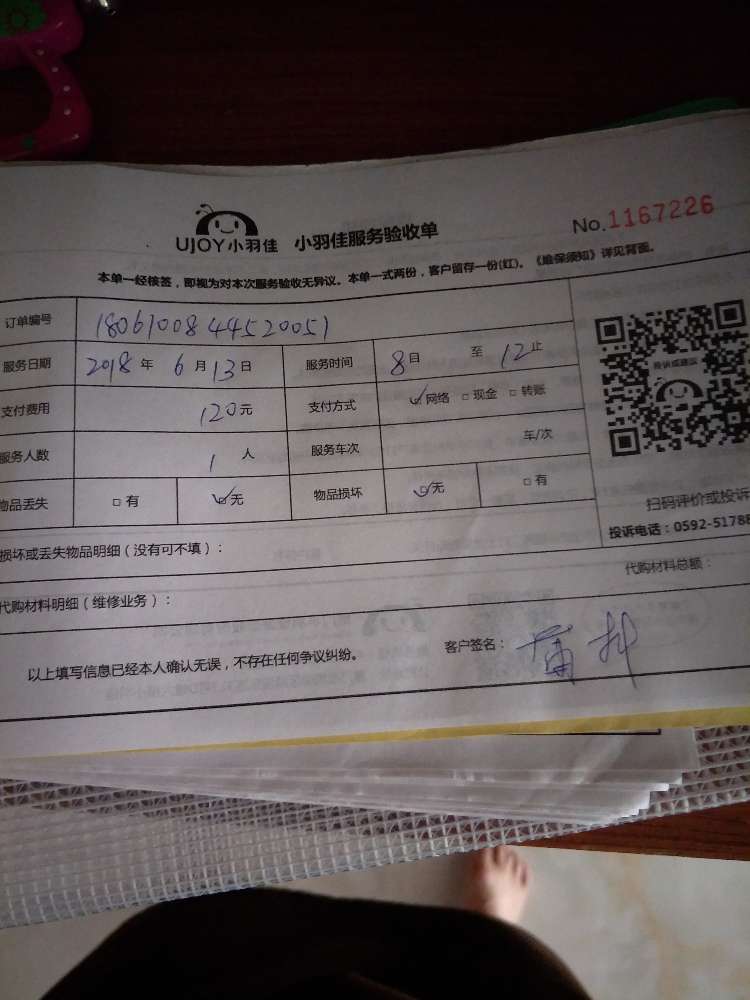 UJOY小羽佳 小羽佳服务验收单 No.1167226
本单一经核签，即视为对本次服务验收无异议。本单一式两份，客户留存一份(红)。《维保须知》详见背面。
订单编号 18061008444520051
服务日期 2018年6月13日 服务时间 8 至 12
支付费用 120元 支付方式 ☑网络 □现金 □转账
服务人数 1人 服务车次 车/次
物品丢失 □有 ☑无 物品损坏 ☑无 □有
投诉或建议
扫码评价或投诉
投诉电话：0592-51788
损坏或丢失物品明细（没有可不填）：
代购材料明细（维修业务）： 代购材料总额：
以上填写信息已经本人确认无误，不存在任何争议纠纷。 客户签名：